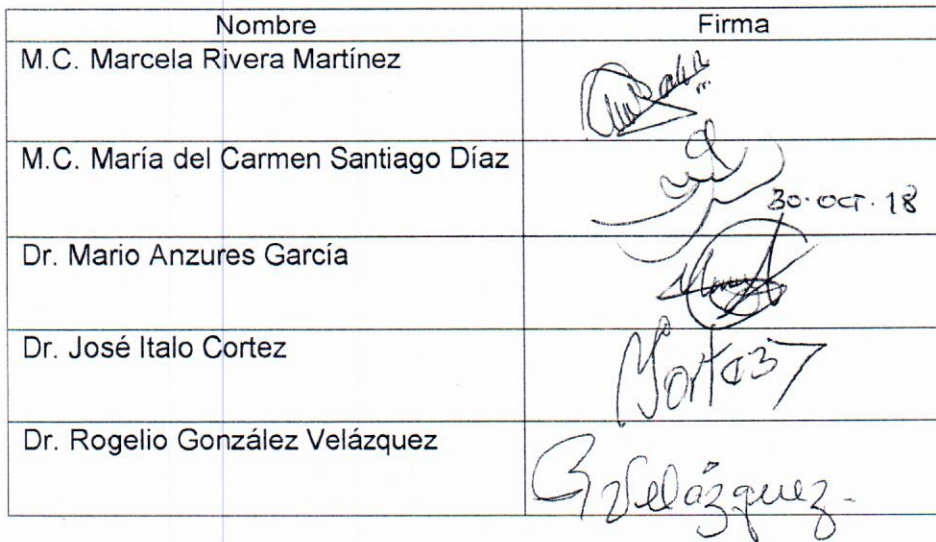 Nombre Firma
M.C. Marcela Rivera Martínez
M.C. María del Carmen Santiago Díaz
30·OCT·18
Dr. Mario Anzures García
Dr. José Italo Cortez
Dr. Rogelio González Velázquez
G Velázquez